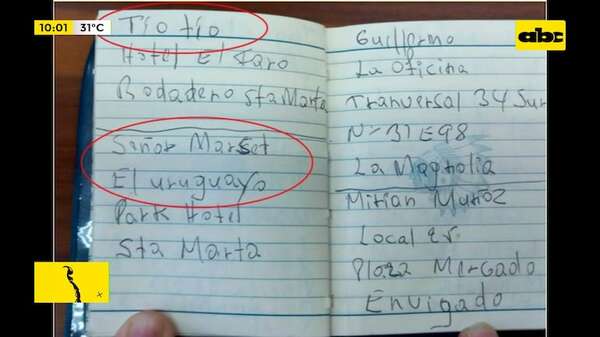 10:01 31°C
abc
Tio tio
Hotel El Faro
Rodadero Sta Marta
Señor Marset
El uruguayo
Park Hotel
Sta Marta
Guillermo
La Oficina
Tranversal 34 Sur
N- 31 E 98
La Magnolia
Mirian Muñoz
Local
Plaza Mercado
Envigado